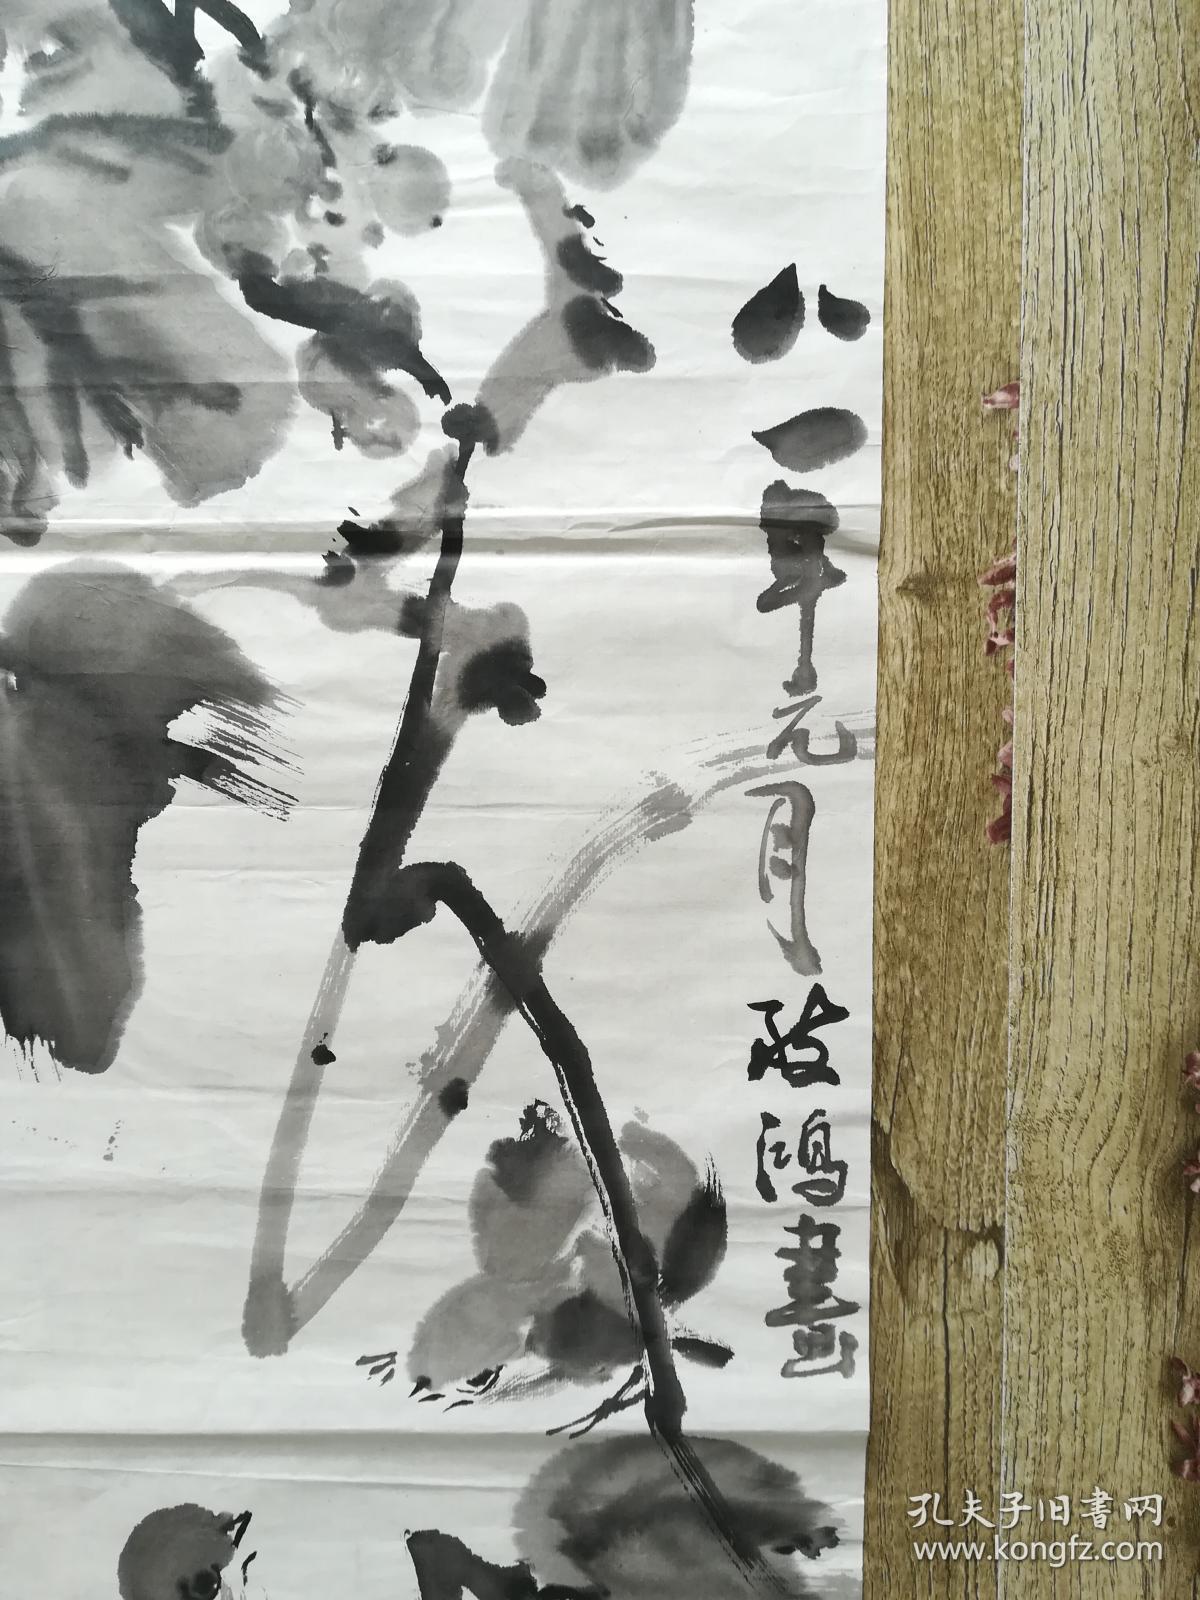 八一年元月敬鴻畫
孔夫子旧書网
www.kongfz.com